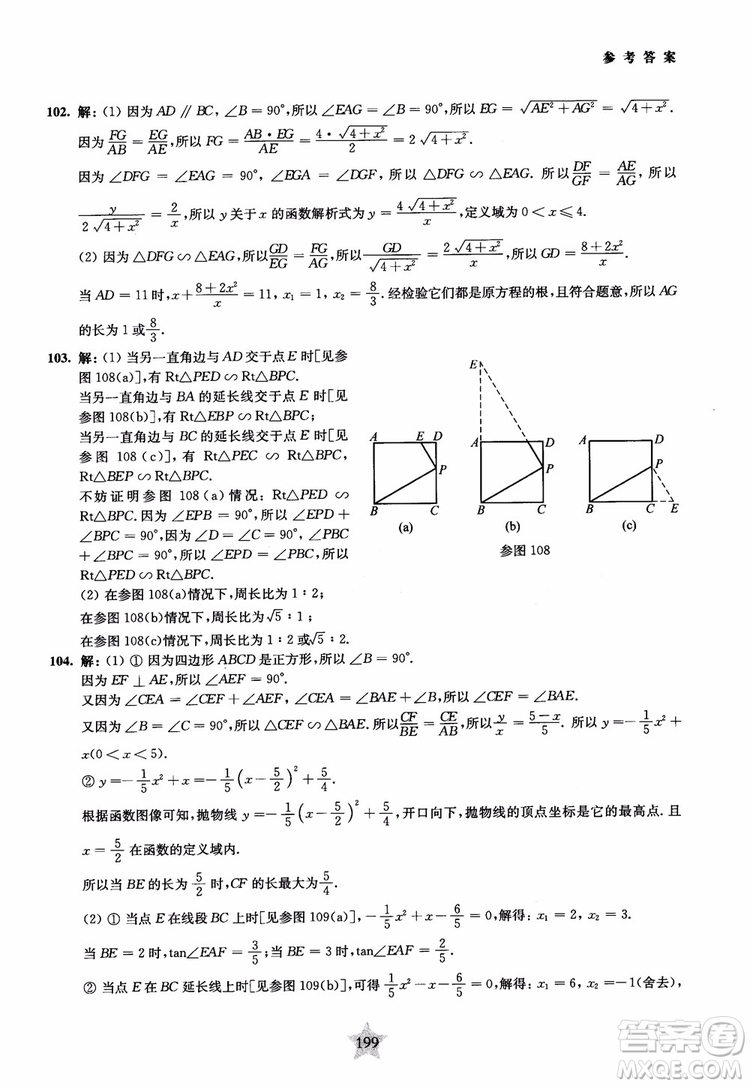 参考答案
102. 解：(1) 因为 AD ∥ BC，∠B = 90°，所以 ∠EAG = ∠B = 90°，所以 EG = √(AE² + AG²) = √(4 + x²).
因为 FG/AB = EG/AE，所以 FG = AB·EG/AE = 4·√(4 + x²)/2 = 2√(4 + x²).
因为 ∠DFG = ∠EAG = 90°，∠EGA = ∠DGF，所以 △DFG ∽ △EAG. 所以 DF/GF = AE/AG，所以
y/(2√(4 + x²)) = 2/x，所以 y 关于 x 的函数解析式为 y = 4√(4 + x²)/x，定义域为 0 < x ≤ 4.
(2) 因为 △DFG ∽ △EAG，所以 GD/EG = FG/AG，所以 GD/√(4 + x²) = 2√(4 + x²)/x，所以 GD = (8 + 2x²)/x.
当 AD = 11 时，x + (8 + 2x²)/x = 11，x₁ = 1，x₂ = 8/3. 经检验它们都是原方程的根，且符合题意，所以 AG
的长为 1 或 8/3.
103. 解：(1) 当另一直角边与 AD 交于点 E 时[见参
图 108(a)]，有 Rt△PED ∽ Rt△BPC.
当另一直角边与 BA 的延长线交于点 E 时[见
参图 108(b)]，有 Rt△EBP ∽ Rt△BPC；
当另一直角边与 BC 的延长线交于点 E 时[见
参图 108(c)]，有 Rt△PEC ∽ Rt△BPC，
Rt△BEP ∽ Rt△BPC.
不妨证明参图 108(a)情况：Rt△PED ∽
Rt△BPC. 因为 ∠EPB = 90°，所以 ∠EPD +
∠BPC = 90°，因为 ∠D = ∠C = 90°，∠PBC
+ ∠BPC = 90°，所以 ∠EPD = ∠PBC，所以
Rt△PED ∽ Rt△BPC.
(2) 在参图 108(a)情况下，周长比为 1∶2；
在参图 108(b)情况下，周长比为√5∶1；
在参图 108(c)情况下，周长比为 1∶2或√5∶2.
A E D
P
B C
(a)
E
A D
P
B C
(b)
A D
P
B C E
(c)
参图 108
104. 解：(1) ① 因为四边形 ABCD 是正方形，所以 ∠B = 90°.
因为 EF ⊥ AE，所以 ∠AEF = 90°.
又因为 ∠CEA = ∠CEF + ∠AEF，∠CEA = ∠BAE + ∠B，所以 ∠CEF = ∠BAE.
又因为 ∠B = ∠C = 90°，所以 △CEF ∽ △BAE. 所以 CF/BE = CE/AB，所以 y/x = (5 − x)/5. 所以 y = −1/5 x² +
x(0 < x < 5).
② y = −1/5 x² + x = −1/5 (x − 5/2)² + 5/4,
根据函数图像可知，抛物线 y = −1/5 (x − 5/2)² + 5/4，开口向下，抛物线的顶点坐标是它的最高点. 且
x = 5/2 在函数的定义域内.
所以当 BE 的长为 5/2 时，CF 的长最大为 5/4.
(2) ① 当点 E 在线段 BC 上时[见参图 109(a)]，−1/5 x² + x − 6/5 = 0，解得：x₁ = 2，x₂ = 3.
当 BE = 2 时，tan∠EAF = 3/5；当 BE = 3 时，tan∠EAF = 2/5.
② 当点 E 在 BC 延长线上时[见参图 109(b)]，可得 1/5 x² − x − 6/5 = 0，解得：x₁ = −1(舍去)，
199
答案卷
MXQE.COM